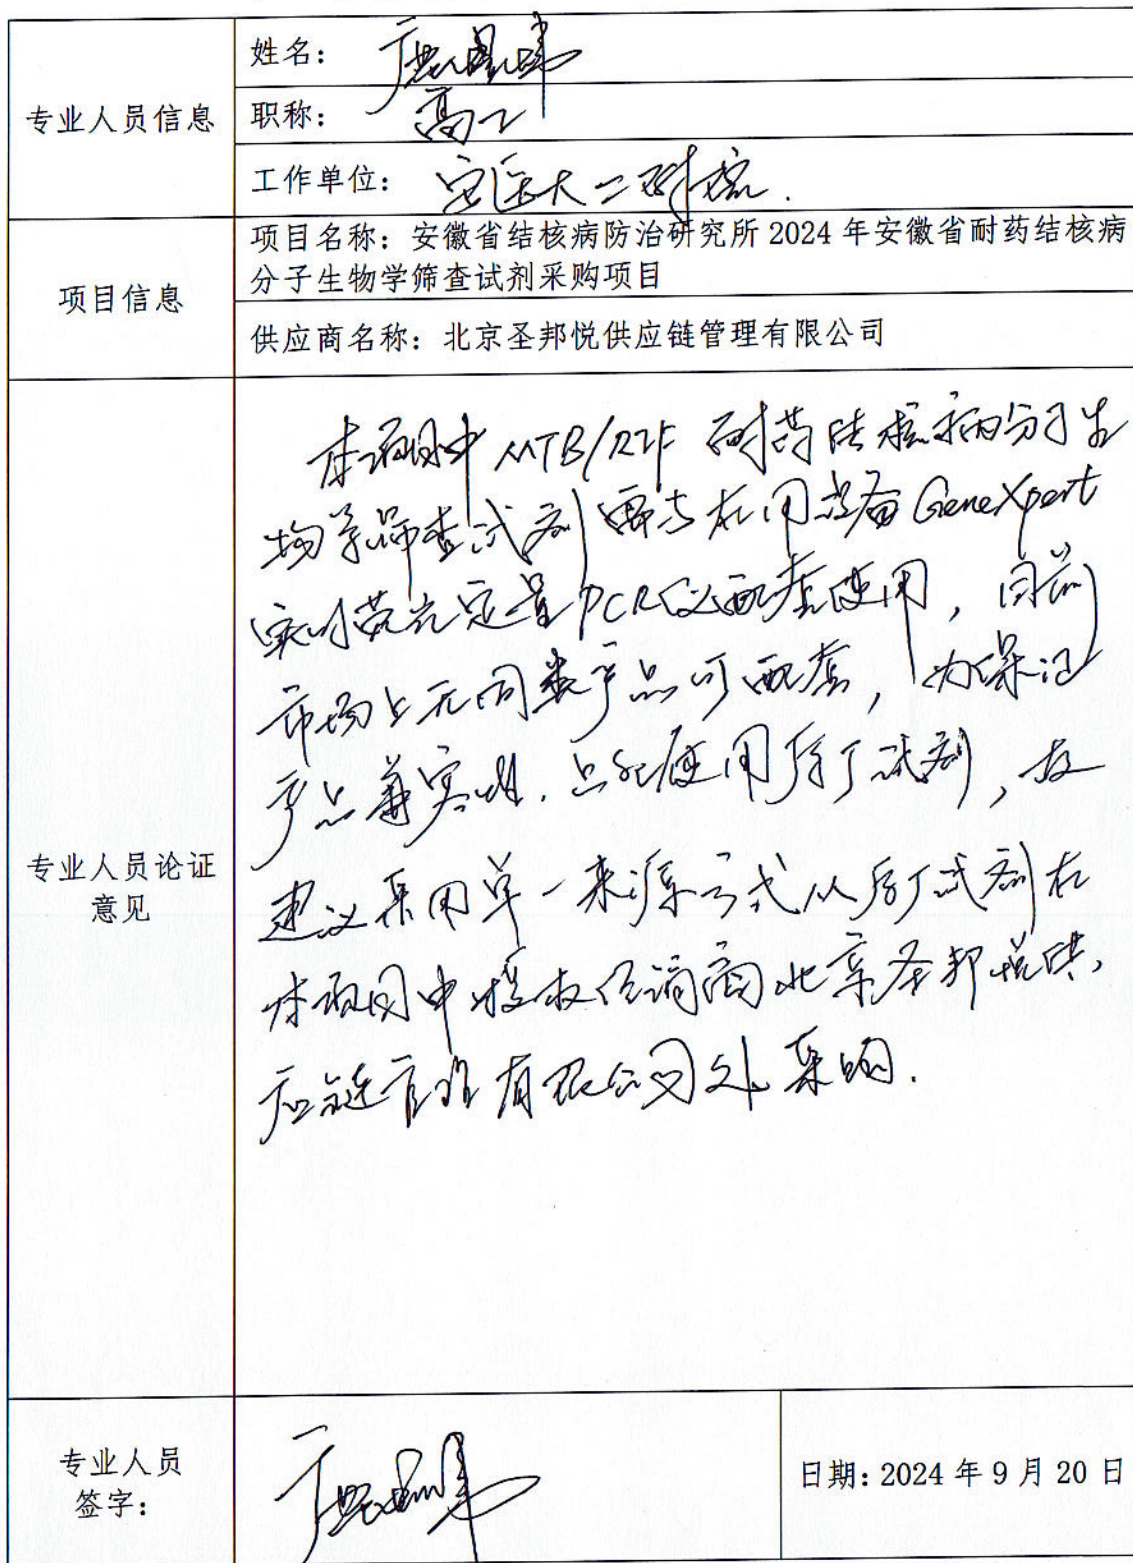 姓名：
职称：高工
专业人员信息
工作单位：安医大二附院.
项目名称：安徽省结核病防治研究所 2024 年安徽省耐药结核病
分子生物学筛查试剂采购项目
项目信息
供应商名称：北京圣邦悦供应链管理有限公司
本项目中 MTB/RIF 耐药结核病分子生
物学筛查试剂需与在用设备 GeneXpert
实时荧光定量PCR仪配套使用，目前
市场上无同类产品可配套，为保证
产品兼容性，只能使用原厂试剂，故
专业人员论证
意见
建议采用单一来源方式从原厂试剂在
本项目中授权经销商北京圣邦悦供
应链管理有限公司处采购.
专业人员
签字：
日期：2024 年 9 月 20 日